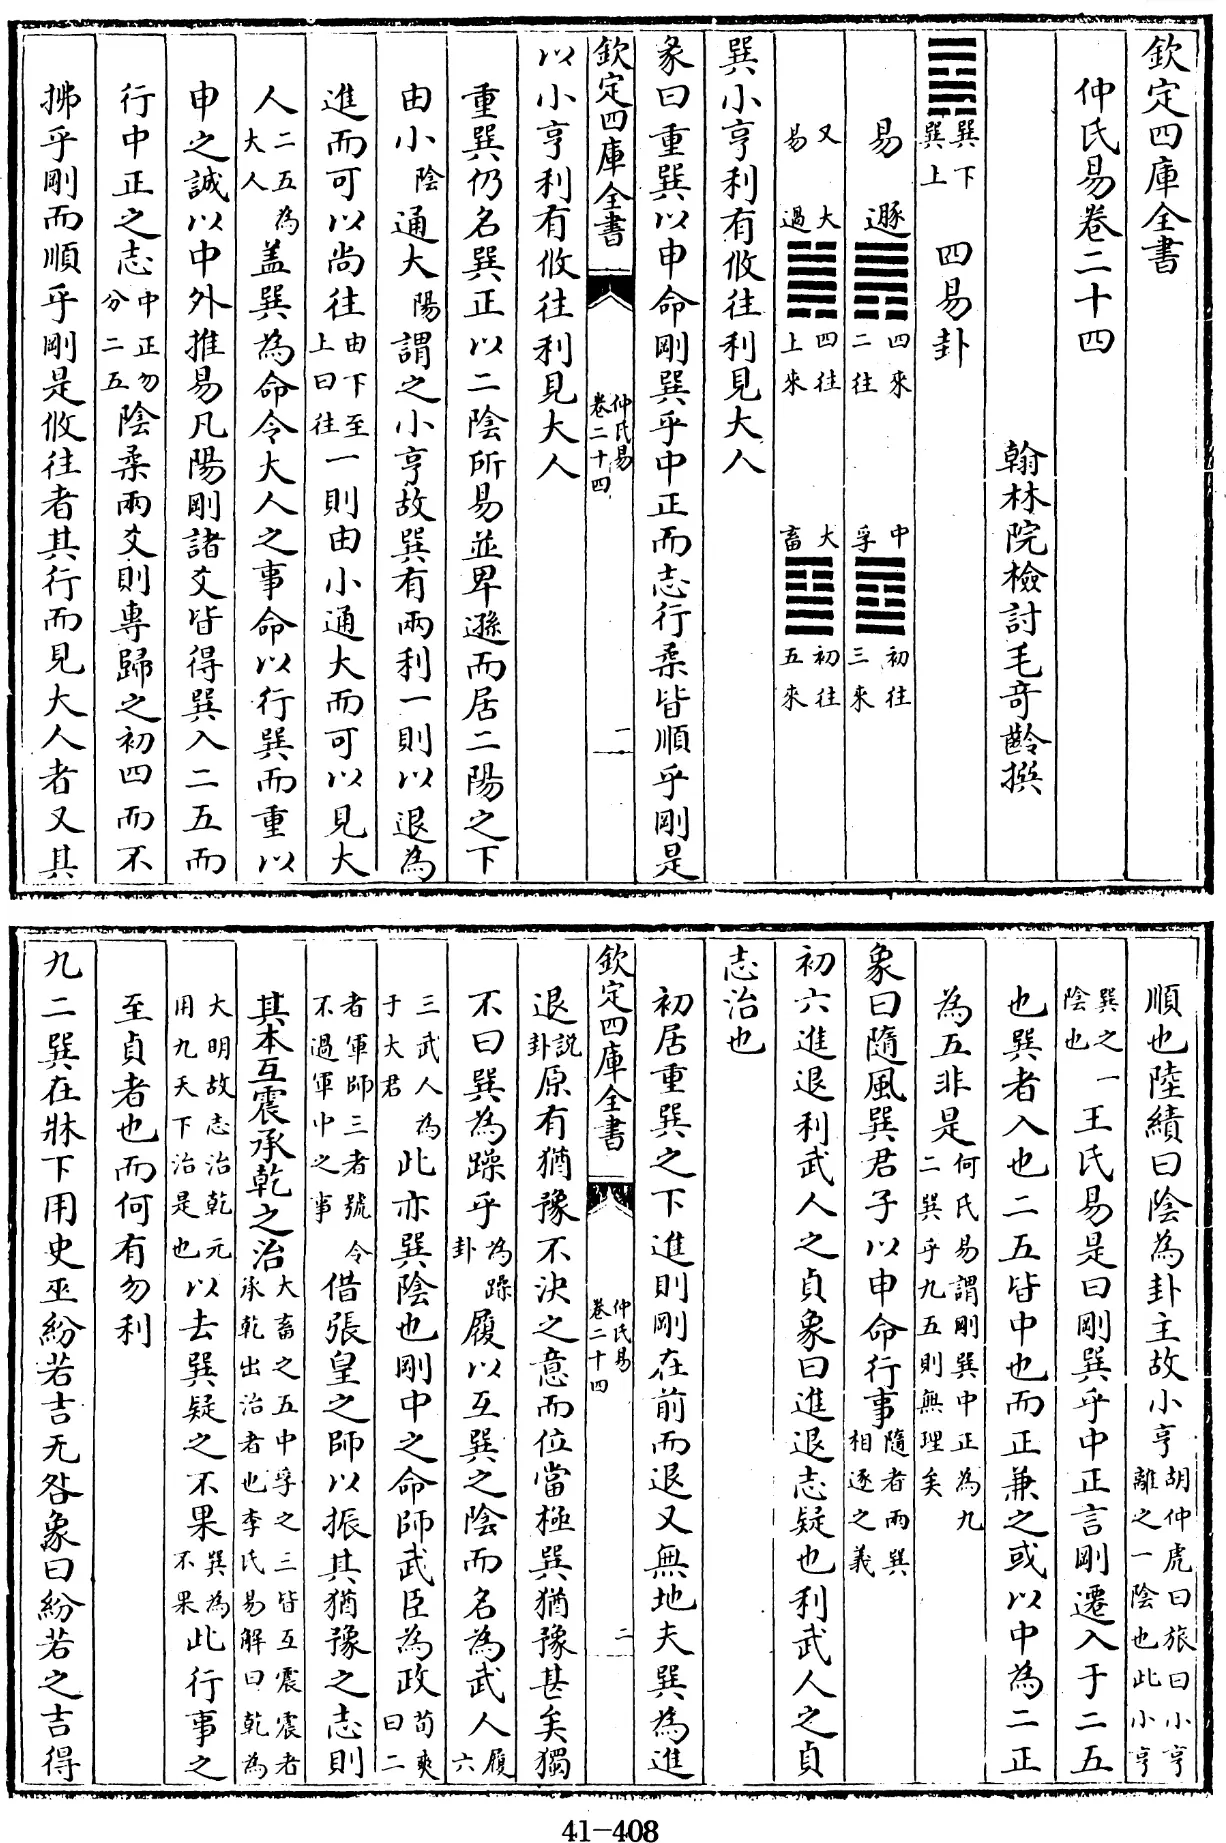 欽定四庫全書
仲氏易卷二十四
翰林院檢討毛奇齡撰
巽下巽上 四易卦
易 遯 四來二往 中孚 初往三來
又易 大過 四往上來 大畜 初往五來
巽小亨利有攸往利見大人
彖曰重巽以申命剛巽乎中正而志行柔皆順乎剛是
以小亨利有攸往利見大人
重巽仍名巽正以二陰所易並卑遜而居二陽之下
由小陰通大陽謂之小亨故巽有兩利一則以退為
進而可以尚往由下至上曰往一則由小通大而可以見大
人二五為大人蓋巽為命令大人之事命以行巽而重以
申之誠以中外推易凡陽剛諸爻皆得巽入二五而
行中正之志中正勿分二五陰柔兩爻則專歸之初四而不
拂乎剛而順乎剛是攸往者其行而見大人者又其
欽定四庫全書
仲氏易
卷二十四
一
順也陸績曰陰為卦主故小亨胡仲虎曰旅曰小亨離之一陰也此小亨
巽之一陰也王氏易是曰剛巽乎中正言剛遷入于二五
也巽者入也二五皆中也而正兼之或以中為二正
為五非是何氏易謂剛巽中正為九二巽乎九五則無理矣
象曰隨風巽君子以申命行事隨者兩巽相逐之義
初六進退利武人之貞象曰進退志疑也利武人之貞
志治也
初居重巽之下進則剛在前而退又無地夫巽為進
退說卦原有猶豫不決之意而位當極巽猶豫甚矣獨
不曰巽為躁乎為躁卦履以互巽之陰而名為武人履六
三武人為于大君此亦巽陰也剛中之命師武臣為政荀爽曰二
者軍師三者號令不過軍中之事借張皇之師以振其猶豫之志則
其本互震承乾之治大畜之五中孚之三皆互震震者承乾出治者也李氏易解曰乾為
大明故志治乾元用九天下治是也以去巽疑之不果巽為不果此行事之
至貞者也而何有勿利
九二巽在牀下用史巫紛若吉无咎象曰紛若之吉得
欽定四庫全書
仲氏易
卷二十四
二
41-408